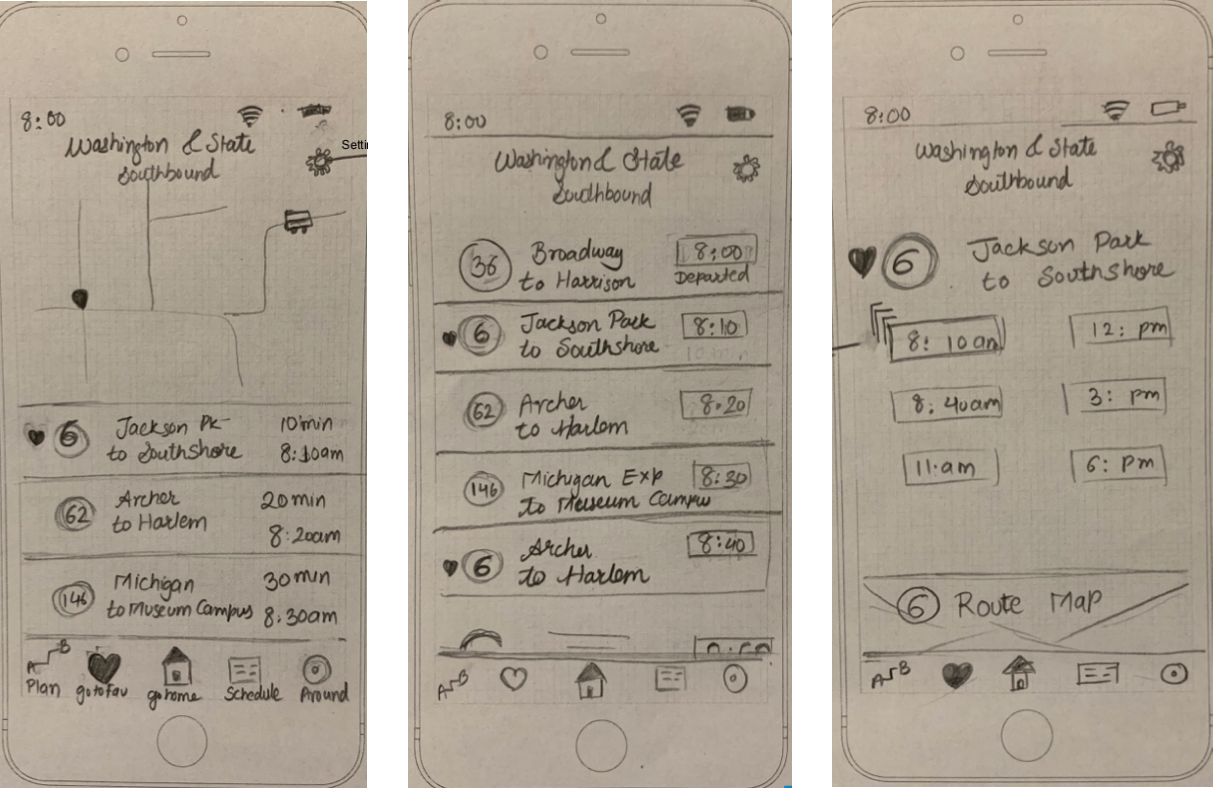 8:00
Washington & State
Southbound
Setti
6
Jackson Pk
to Southshore
10min
8:10am
62
Archer
to Harlem
20min
8:20am
146
Michigan
to Museum Campus
30min
8:30am
A B
Plan
go to fav
go home
Schedule
Around
8:00
Washington & State
Southbound
36
Broadway
to Harrison
8:00
Departed
6
Jackson Park
to Southshore
8:10
62
Archer
to Harlem
8:20
146
Michigan Exp
to Museum Campus
8:30
6
Archer
to Harlem
8:40
A B
8:00
Washington & State
Southbound
6
Jackson Park
to Southshore
8:10am
12: pm
8:40am
3: pm
11.am
6: pm
6 Route Map
A B